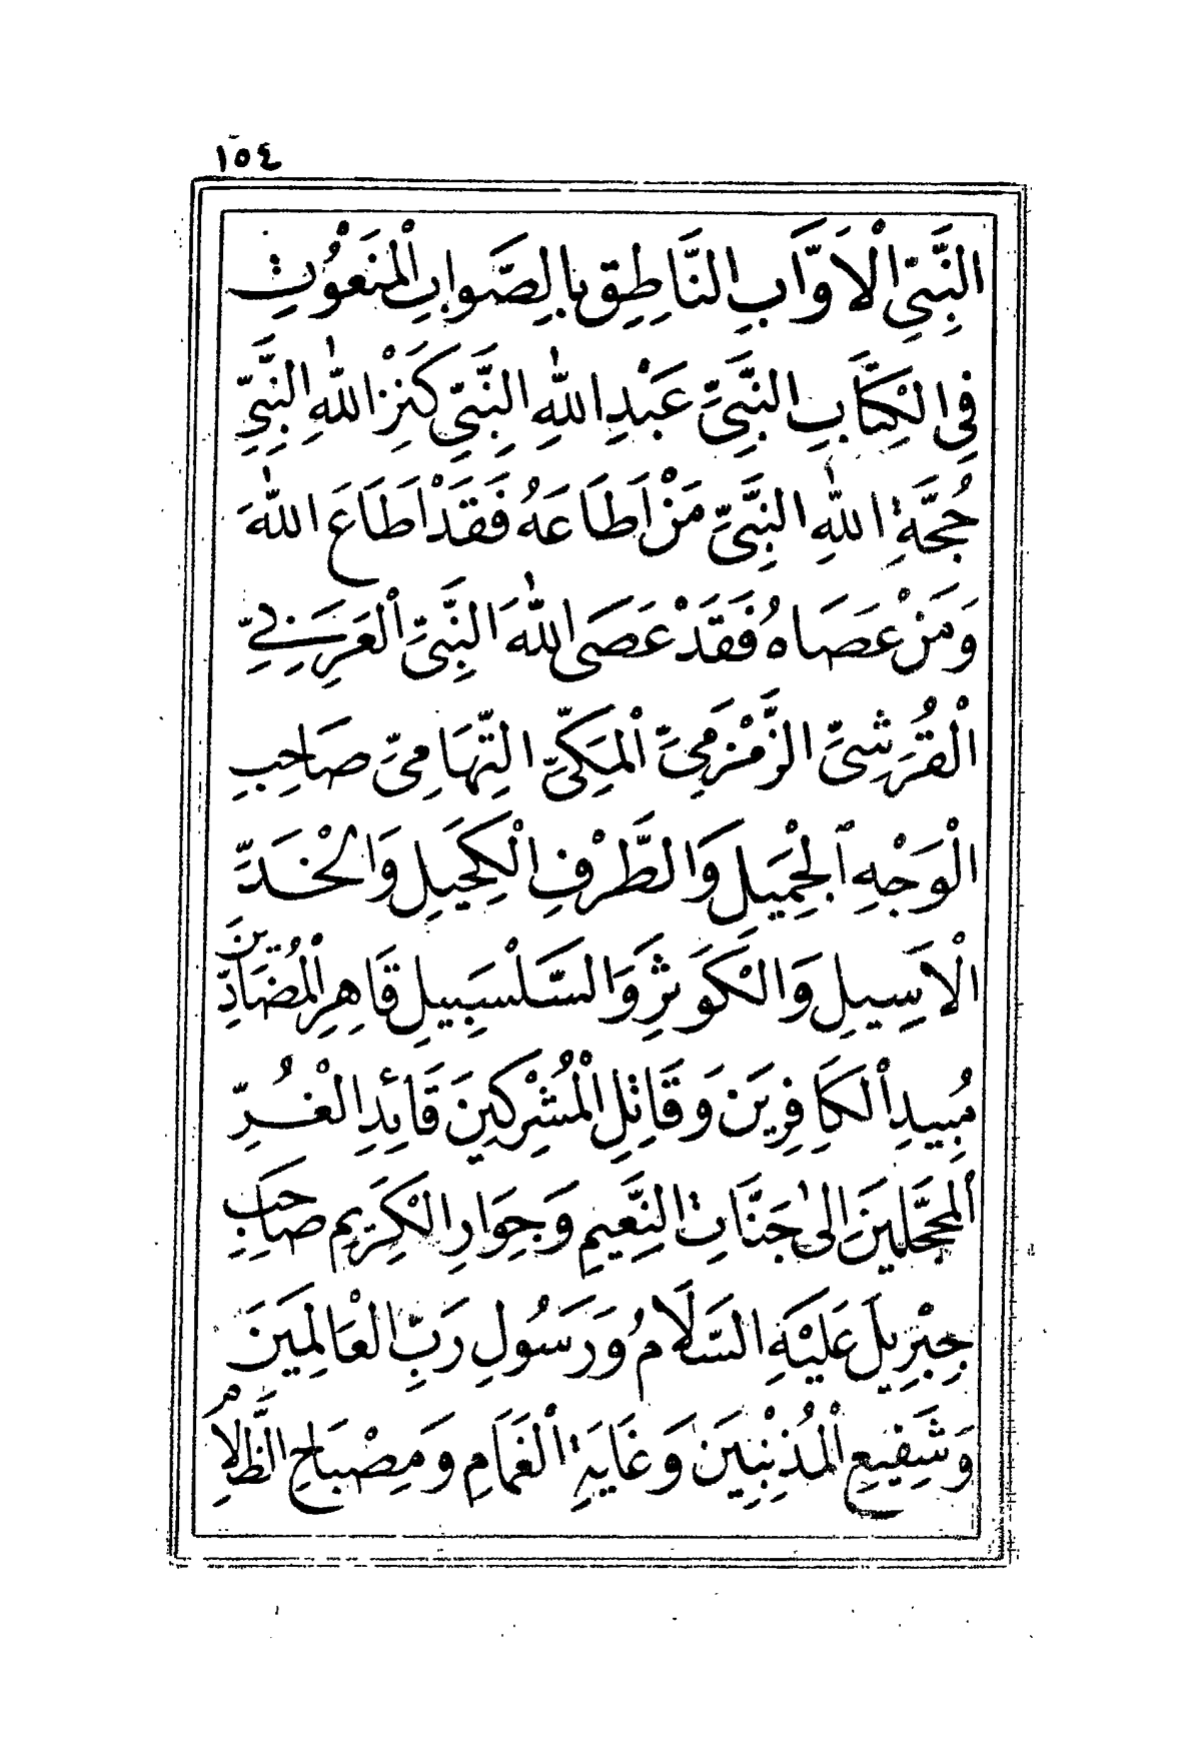 ١٥٤
النَّبِيِّ الْاَوَّابِ النَّاطِقِ بِالصَّوَابِ الْمَنْعُوْتِ
فِى الْكِتَابِ النَّبِيِّ عَبْدِ اللّٰهِ النَّبِيِّ كَنْزِ اللّٰهِ النَّبِيِّ
حُجَّةِ اللّٰهِ النَّبِيِّ مَنْ اَطَاعَهُ فَقَدْ اَطَاعَ اللّٰهَ
وَمَنْ عَصَاهُ فَقَدْ عَصَى اللّٰهَ النَّبِيِّ الْعَرَبِيِّ
الْقُرَشِيِّ الزَّمْزَمِيِّ الْمَكِّيِّ التِّهَامِيِّ صَاحِبِ
الْوَجْهِ الْجَمِيلِ وَالطَّرْفِ الْكَحِيلِ وَالْخَدِّ
الْاَسِيلِ وَالْكَوْثَرِ وَالسَّلْسَبِيلِ قَاهِرِ الْمُضَادِّينَ
مُبِيدِ الْكَافِرِينَ وَقَاتِلِ الْمُشْرِكِينَ قَائِدِ الْغُرِّ
الْمُحَجَّلِينَ اِلٰى جَنَّاتِ النَّعِيمِ وَجِوَارِ الْكَرِيمِ صَاحِبِ
جِبْرِيلَ عَلَيْهِ السَّلَامُ وَرَسُولِ رَبِّ الْعَالَمِينَ
وَشَفِيعِ الْمُذْنِبِينَ وَغَايَةِ الْغَمَامِ وَمِصْبَاحِ الظَّلَامِ